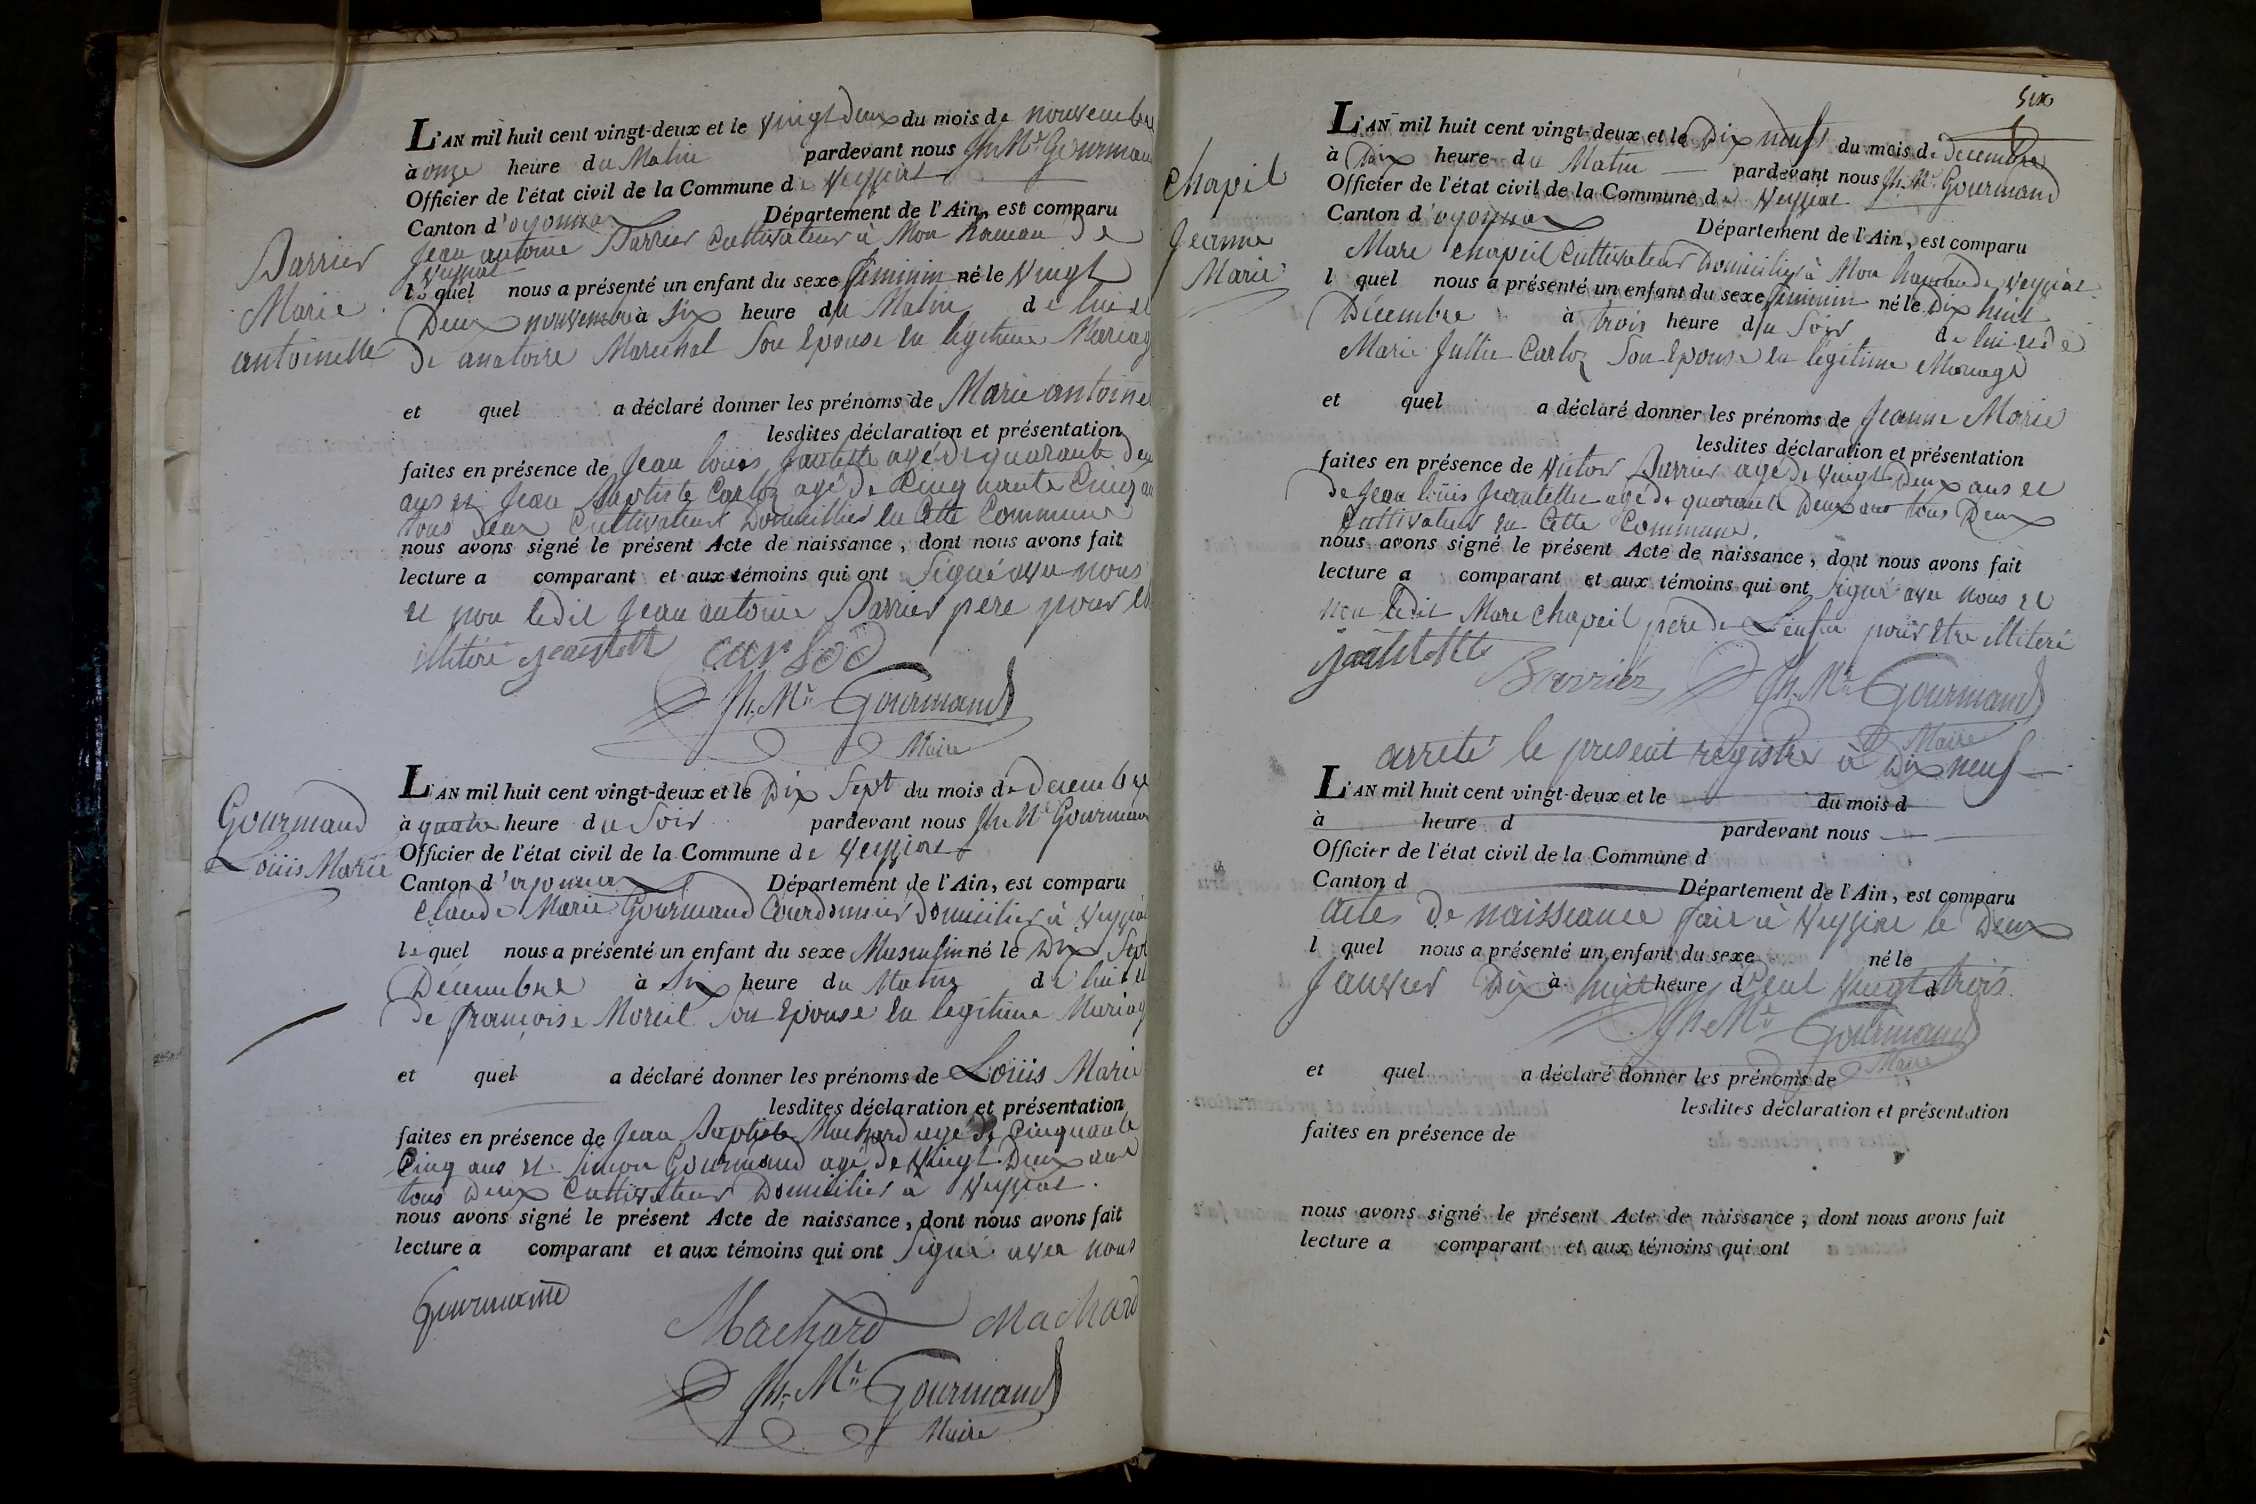 Barrier
Marie
antoinette
L'AN mil huit cent vingt-deux et le vingt deux du mois de nouvembre
à onze heure du Matin pardevant nous Jh. Mie Gourmand
Officier de l'état civil de la Commune de Veyziat
Canton d'oyonnax Département de l'Ain, est comparu
Jean antoine Barrier Cultivateur à Mon hameau de
Veyziat
le quel nous a présenté un enfant du sexe feminin né le Vingt
Deux nouvembre à Six heure du Matin de lui et
de anatoire Marechal Son Epouse en legitime Mariag
et quel a déclaré donner les prénoms de Marie antoine
lesdites déclaration et présentation
faites en présence de Jean louis Jantette agé de quarante deu
ans et Jean Baptiste Carloz agé de Cinquante Cinq an
tous deux Cultivateurs Domicilliés en Cette Commune
nous avons signé le présent Acte de naissance, dont nous avons fait
lecture a comparant et aux témoins qui ont Signé avec nous
et non ledit Jean antoine Barrier pere pour et
illitéré
Jh. Mie Gourmand
Maire
Gourmand
Louis Marie
L'AN mil huit cent vingt-deux et le Dix Sept du mois de Decembre
à quatre heure du Soir pardevant nous Jh. Mie Gourman
Officier de l'état civil de la Commune de Veyziat
Canton d'oyonnax Département de l'Ain, est comparu
Claude Marie Gourmand Courdonnier domicilier à Veyzia
le quel nous a présenté un enfant du sexe Musculin né le Dix Sept
Décembre à Six heure du Matin de lui et
de françoise Moreel Son Epouse en legitime Mariag
et quel a déclaré donner les prénoms de Louis Marie
lesdites déclaration et présentation
faites en présence de Jean Baptiste Machard agé de Cinquante
Cinq ans et Simon Gourmand agé de Vingt Deux ans
tous Deux Cultivateurs Domicilier à Veyziat.
nous avons signé le présent Acte de naissance, dont nous avons fait
lecture a comparant et aux témoins qui ont Signé avec nous
Machard Machard
Jh. Mie Gourmand
Maire
Six
Chapeil
Jeanne
Marie
L'AN mil huit cent vingt-deux et le Dix neuf du mois de Decembre
à Dix heure du Matin pardevant nous Jh. Mie Gourmand
Officier de l'état civil de la Commune de Veyziat
Canton d'oyonnax Département de l'Ain, est comparu
Marc Chapeil Cultivateur Domicilier à Mon hameau de Veyziat
l quel nous a présenté un enfant du sexe feminin né le Dix huit
Décembre à trois heure du Soir de lui et de
Marie Jullie Carloz Son Epouse en légitime Mariage
et quel a déclaré donner les prénoms de Jeanne Marie
lesdites déclaration et présentation
faites en présence de Victor Barrier agé de Vingt Deux ans et
de Jean louis Jeantette agé de quarante Deux ans tous Deux
Cultivateur en Cette Commune.
nous avons signé le présent Acte de naissance, dont nous avons fait
lecture a comparant et aux témoins qui ont Signé avec nous et
non ledit Marc Chapeil pere de L'enfan pour etre illiteré
Barrier Jh. Mie Gourmand
Maire
arreté le present registre à Dix neuf
L'AN mil huit cent vingt-deux et le du mois d
à heure d pardevant nous
Officier de l'état civil de la Commune d
Canton d Département de l'Ain, est comparu
actes de naissance fait à Veyziat le Deux
l quel nous a présenté un enfant du sexe né le
Janvier Dix à huit heure d Cent Vingt d trois
Jh. Mie Gourmand
Maire
et quel a déclaré donner les prénoms de
lesdites déclaration et présentation
faites en présence de
nous avons signé le présent Acte de naissance, dont nous avons fait
lecture a comparant et aux témoins qui ont